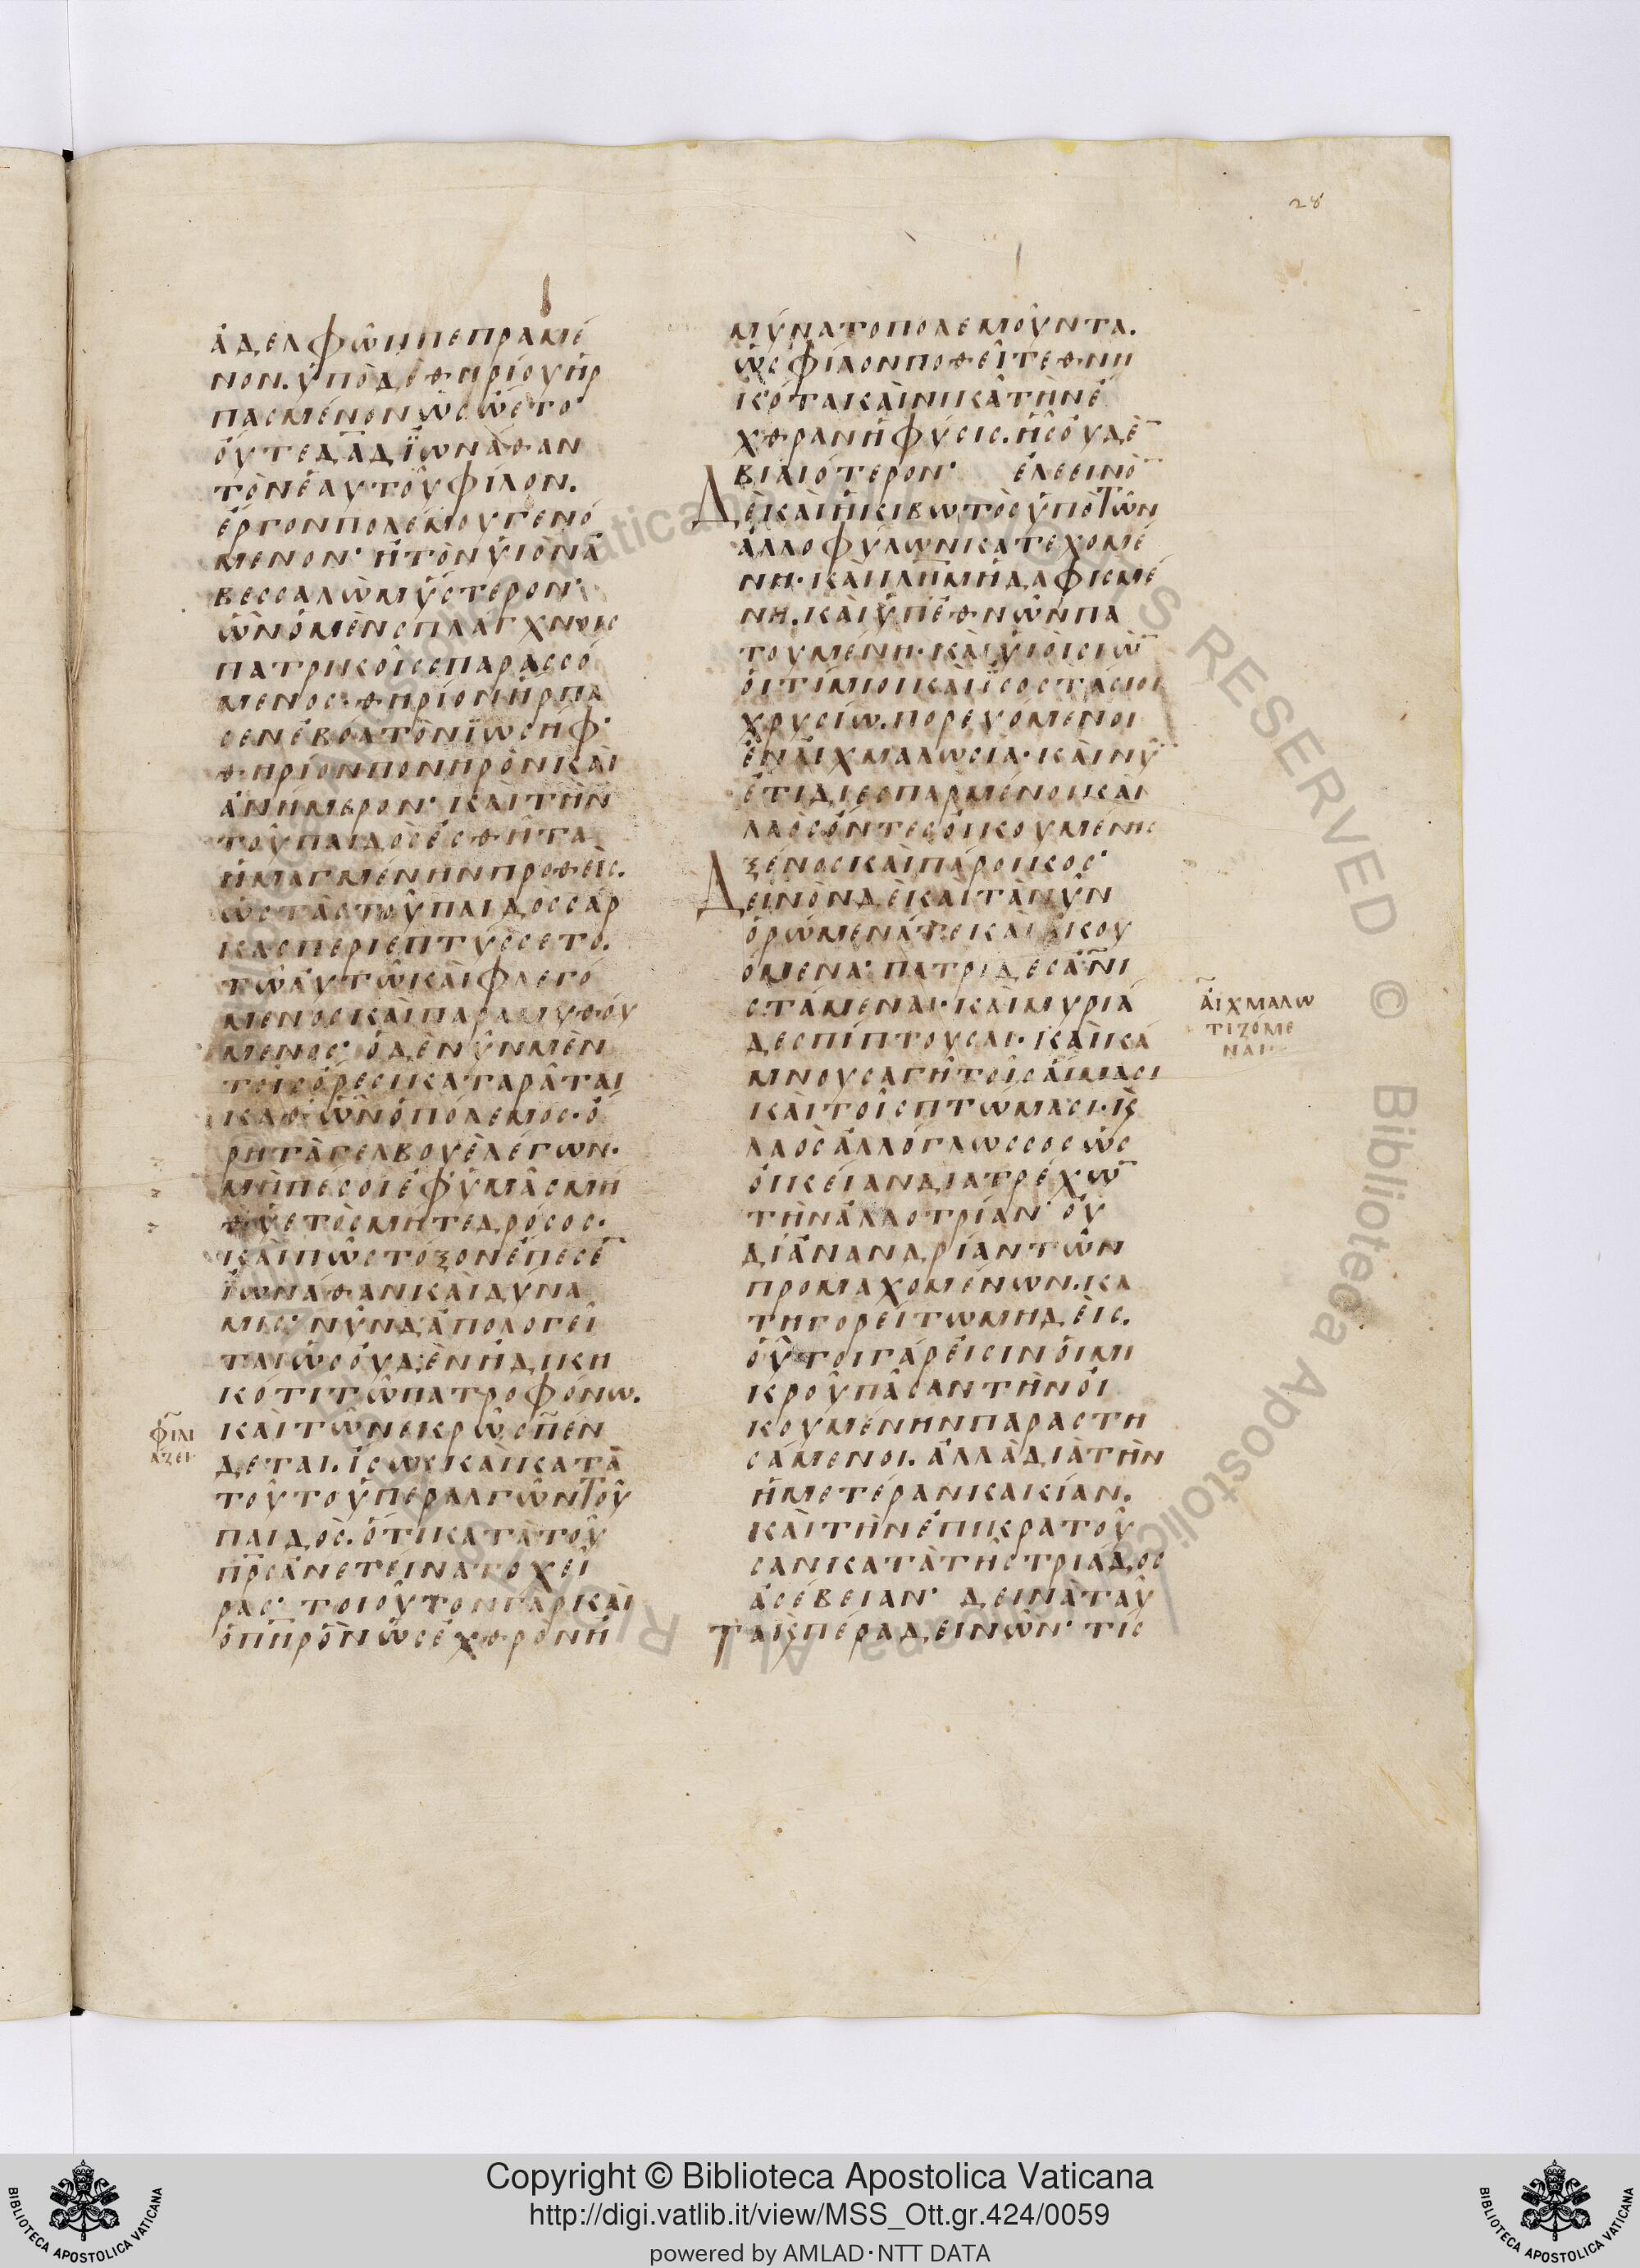 28
ἀδελφῶν πεπραμέ
νον. ὑπὸ δὲ θηρίου ἡρ
πασμένον ὡς ᾤετο·
οὔτε δᾱδ ϊωνάθαν
τὸν ἑαυτοῦ φίλον.
ἔργον πολέμου γενό
μενον· ἢ τὸν ὑιὸν ἀ
βεσσαλὼμ ὕστερον·
ὧν ὁ μὲν σπλάγχνοις
πατρικοῖς σπαρασσό
μενος· θηρίον ἥρπα
σεν ἐβόα τὸν ϊωσήφ·
θηρίον πονηρὸν καὶ
ἀνήμερον· καὶ τὴν
τοῦ παιδὸς ἐσθῆτα
ἡμαγμένην προθεὶς.
ὡς τὰς τοῦ παιδὸς σάρ
κας περιεπτύσσετο.
τῷ αὐτῷ καὶ φλεγό
μενος καὶ παραμυθού
μενος· ὁ δὲ νῦν μὲν
τοῖς ὄρεσι καταρᾶται
καθ' ὧν ὁ πόλεμος· ὄ
ρη τὰ γελβουὲ λέγων·
μὴ πέσοι ἐφ' ὑμᾶς μὴ
θ' ὑετὸς μήτε δρόσος·
καὶ πῶς τόξον ἔπεσε̄
ϊωνάθαν καὶ δύνα
μις· νῦν δ' ἀπολογεῖ
ται ὡς οὐδὲν ἠδικη
κότι τῷ πατροφόνῳ.
φιλι
άζει
καὶ τῷ νεκρῷ σπέν
δεται. ἴσως καὶ κατὰ
τοῦτο ὑπεραλγῶν τοῦ
παιδὸς. ὅτι κατὰ τοῦ
πρ̅ς ἀνετείνατο χεῖ
ρας· τοιοῦτον γὰρ καὶ
ὁ πη̅ρ ὃν ὡς ἐχθρὸν ἠ
μύνατο πολεμοῦντα.
ὡς φίλον ποθεῖ τεθνη
κότα καὶ νικᾷ τὴν ἔ
χθραν ἡ φύσις. ἧς οὐδὲ̅
βιαιότερον· ἐλεεινὸ̅
Δὲ καὶ ἡ κιβωτὸς ὑπὸ τῶν
ἀλλοφύλων κατεχομέ
νη· καὶ ιλη̅μ ἠδαφισμέ
νη. καὶ ὑπ' ἐθνῶν πα
τουμένη· καὶ υἱοὶ σιὼ̅
οἱ τίμιοι καὶ ἰσοστάσιοι
χρυσίῳ. πορευόμενοι
ἐν αἰχμαλωσίᾳ· καὶ νῦ̅
ἔτι διεσπαρμένοι καὶ
λαὸς ὄντες οἰκουμένης
ξένος καὶ πάροικος·
Δεινὸν δὲ καὶ τὰ νῦν
ὁρώμενά τε καὶ ἀκου
όμενα· πατρίδες ἀνι
στάμεναι· καὶ μυριά
αἰχμαλω
τιζόμε
ναι
δες πίπτουσαι· καὶ κά
μνουσα γῆ τοῖς αἵμασι
καὶ τοῖς πτώμασι· κ̀
λαὸς ἀλλόγλωσσος ὡς
οἰκείαν διατρέχω̅
τὴν ἀλλοτρίαν· οὐ
δι' ἀνανδρίαν τῶν
προμαχομένων. κα
τηγορείτω μηδεὶς.
οὗτοι γάρ εἰσιν οἱ μι
κροῦ πᾶσαν τὴν οἰ
κουμένην παραστη
σάμενοι. ἀλλὰ διὰ τὴν
ἡμετέραν κακίαν.
καὶ τὴν ἐπικρατοῦ
σαν κατὰ τῆς τριάδος
ἀσέβειαν· δεινὰ ταῦ
Τα κ̀ πέρα δεινῶν· τίς
Copyright © Biblioteca Apostolica Vaticana
http://digi.vatlib.it/view/MSS_Ott.gr.424/0059
powered by AMLAD·NTT DATA
BIBLIOTECA APOSTOLICA VATICANA
BIBLIOTECA APOSTOLICA VATICANA